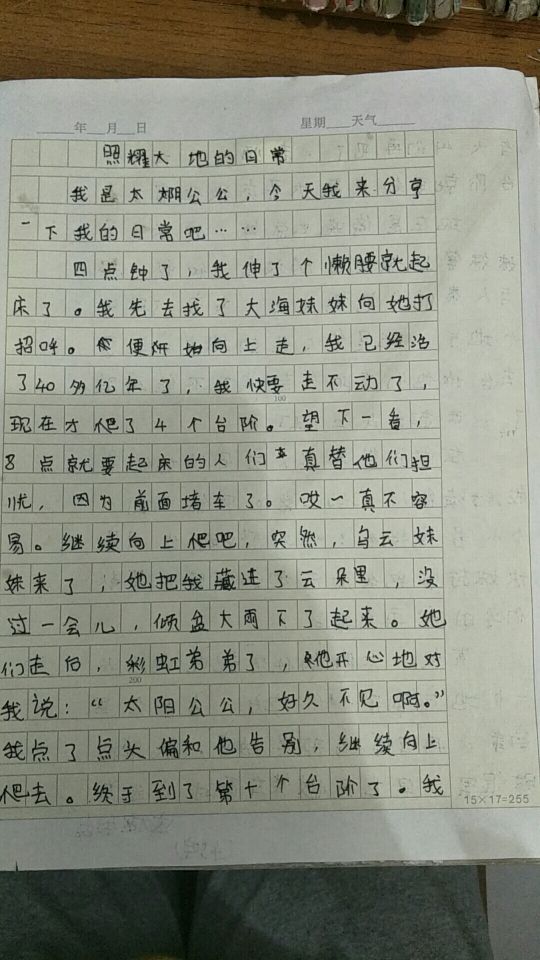 年 月 日 星期 天气
照耀大地的日常
我是太阳公公，今天我来分享
一下我的日常吧……
四点钟了，我伸了个懒腰就起
床了。我先去找了大海妹妹向她打
招呼。便开始向上走，我已经活
了40多亿年了，我快要走不动了，
100
现在才爬了4个台阶。望下一看，
8点就要起床的人们真替他们担
忧，因为前面堵车了。哎一真不容
易。继续向上爬吧，突然，乌云妹
妹来了，她把我藏进了云朵里，没
过一会儿，倾盆大雨下了起来。她
们走后，彩虹弟弟了，他开心地对
200
我说：“太阳公公，好久不见啊。”
我点了点头偏和他告别，继续向上
爬去。终于到了第十个台阶了。我
15×17=255